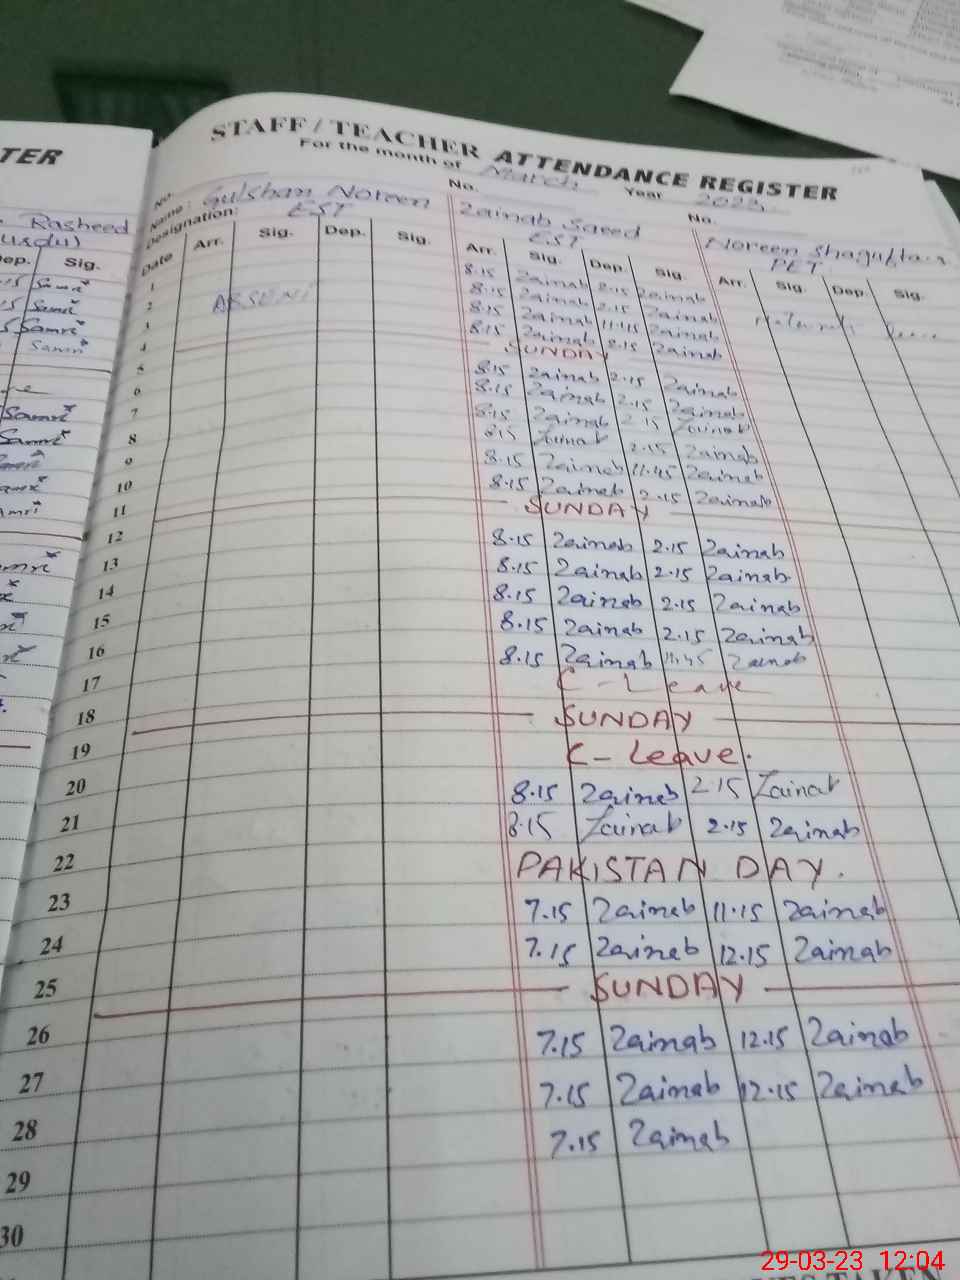 TER
Rasheed
(urdu)
Dep. Sig.
STAFF / TEACHER ATTENDANCE REGISTER
For the month of March Year 2023
No. No. No.
Name: Gulshan Noreen Zainab Saeed Noreen Shagufta
Designation: EST EST PET
Date Arr. Sig. Dep. Sig. Arr. Sig. Dep. Sig. Arr. Sig. Dep. Sig.
1 8.15 Zainab 2.15 Zainab
2 ABSENT 8.15 Zainab 2.15 Zainab
3 8.15 Zainab 11.45 Zainab
4 8.15 Zainab 2.15 Zainab
5 SUNDAY
6 8.15 Zainab 2.15 Zainab
7 8.15 Zainab 2.15 Zainab
8 8.15 Zainab 2.15 Zainab
9 8.15 Zainab 2.15 Zainab
10 8.15 Zainab 11.45 Zainab
11 8.15 Zainab 2.15 Zainab
12 SUNDAY
13 8.15 Zainab 2.15 Zainab
14 8.15 Zainab 2.15 Zainab
15 8.15 Zainab 2.15 Zainab
16 8.15 Zainab 2.15 Zainab
17 8.15 Zainab 11.45 Zainab
18 C-Leave
19 SUNDAY
20 C-Leave.
21 8.15 Zainab 2.15 Zainab
22 8.15 Zainab 2.15 Zainab
23 PAKISTAN DAY.
24 7.15 Zainab 11.15 Zainab
25 7.15 Zainab 12.15 Zainab
26 SUNDAY
27 7.15 Zainab 12.15 Zainab
28 7.15 Zainab 12.15 Zainab
29 7.15 Zainab
30
29-03-23 12:04